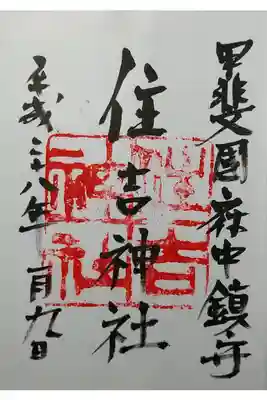 甲斐国府中鎮守
住吉神社
平成二十八年一月九日
住吉神社